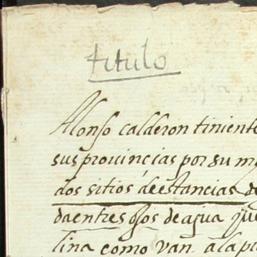 titulo
Alonso calderon tiniente
sus provincias por su m
dos sitios de estancias de
da entre ojos de agua que
lina como van a la p